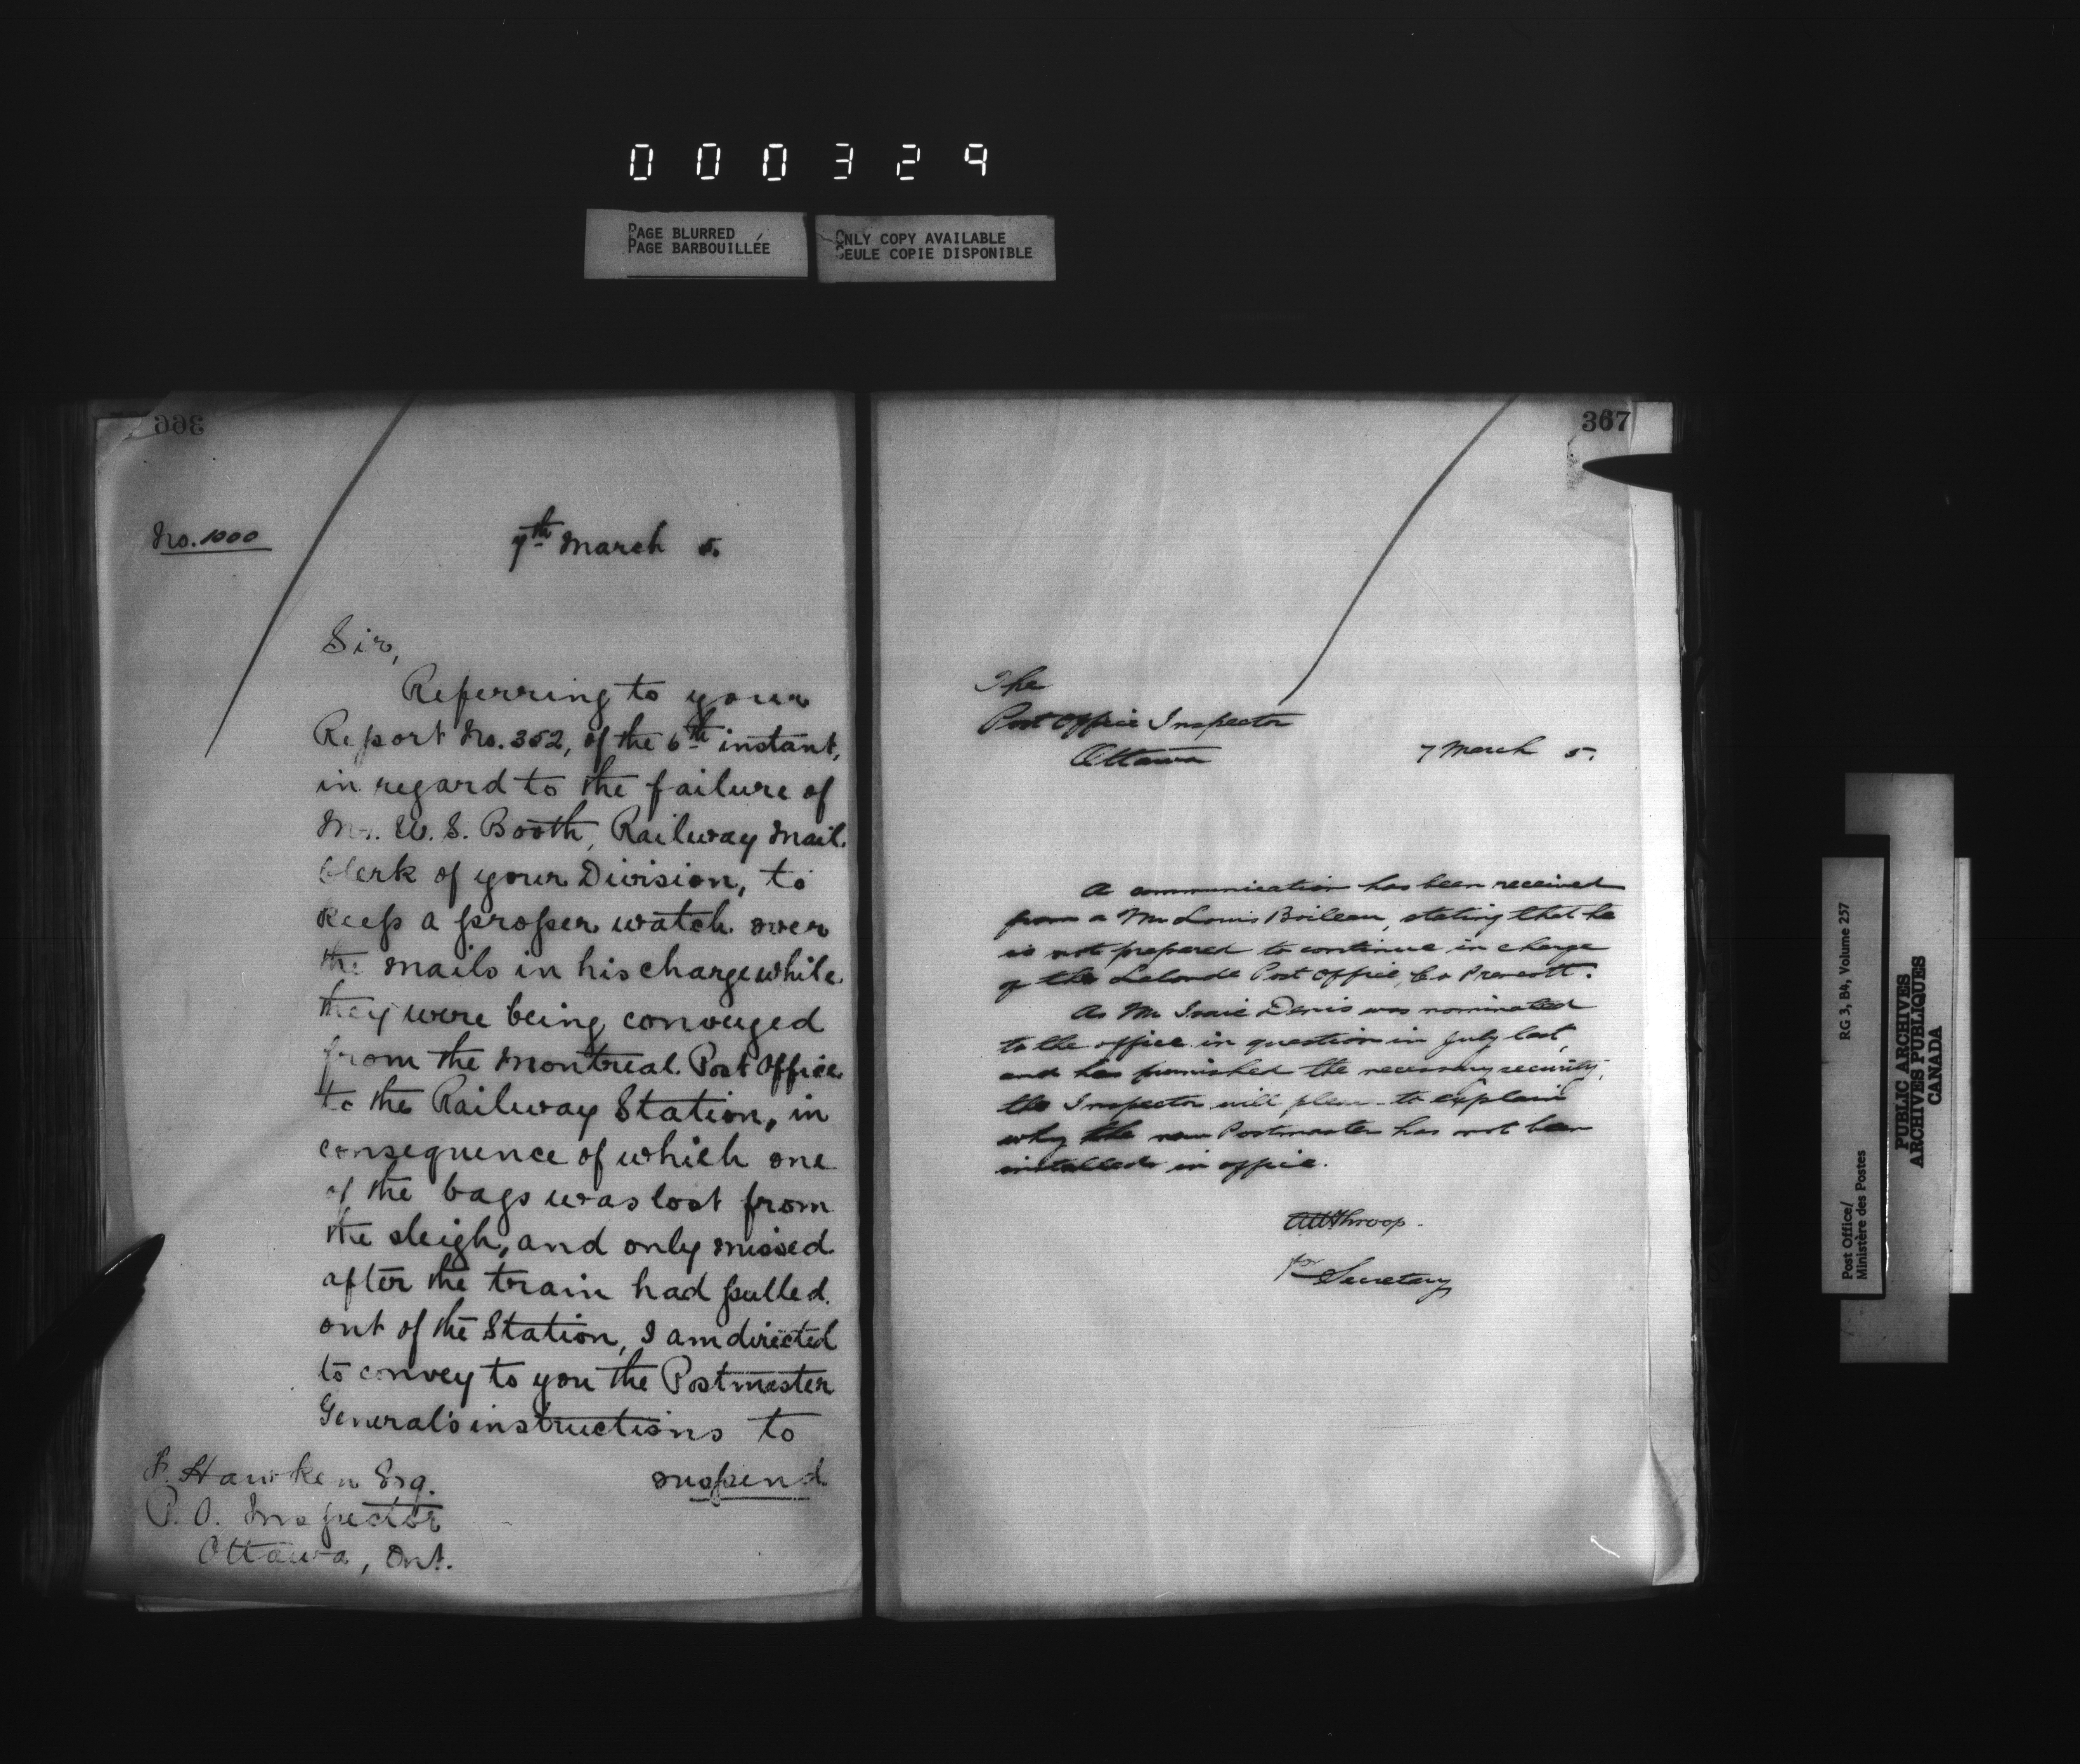 000329
PAGE BLURRED
PAGE BARBOUILLÉE
ONLY COPY AVAILABLE
SEULE COPIE DISPONIBLE
366
No. 1000
7th March 5.
Sir,
Referring to your
Report No. 352, of the 6th instant,
in regard to the failure of
Mr. W. S. Booth, Railway Mail
Clerk of your Division, to
keep a proper watch over
the mails in his charge while
they were being conveyed
from the Montreal Post Office
to the Railway Station, in
consequence of which one
of the bags was lost from
the sleigh, and only missed
after the train had pulled
out of the Station, I am directed
to convey to you the Postmaster
General's instructions to
suspend
F. Hawken Esq.
P. O. Inspector
Ottawa, Ont.
367
The
Post Office Inspector
Ottawa
7 March 5.
A communication has been received
from a Mr Louis Boileau, stating that he
is not prepared to continue in charge
of the Lalonde Post Office, Co Prescott.
As Mr Isaie Denis was nominated
to the office in question in July last,
and has furnished the necessary security,
the Inspector will please to explain
why the new Postmaster has not been
installed in office.
Throop.
for Secretary
Post Office/
Ministère des Postes
RG 3, B4, Volume 257
PUBLIC ARCHIVES
ARCHIVES PUBLIQUES
CANADA